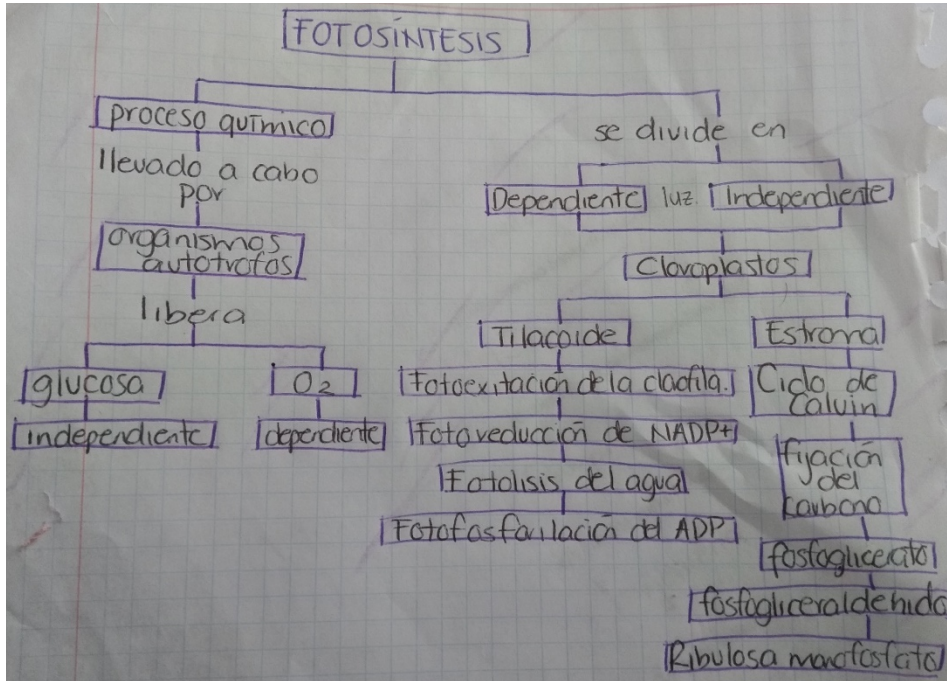 FOTOSÍNTESIS
proceso químico
llevado a cabo
por
organismos
autótrofos
libera
glucosa
O2
independiente
dependiente
se divide en
Dependiente luz Independiente
Cloroplastos
Tilacoide
Fotoexitación de la clorfila.
Fotoreducción de NADP+
Fotolisis del agua
Fotofosforilación del ADP
Estroma
Ciclo de
Calvin
fijación
del
Carbono
fosfoglicerato
fosfogliceraldehido
Ribulosa monofosfato